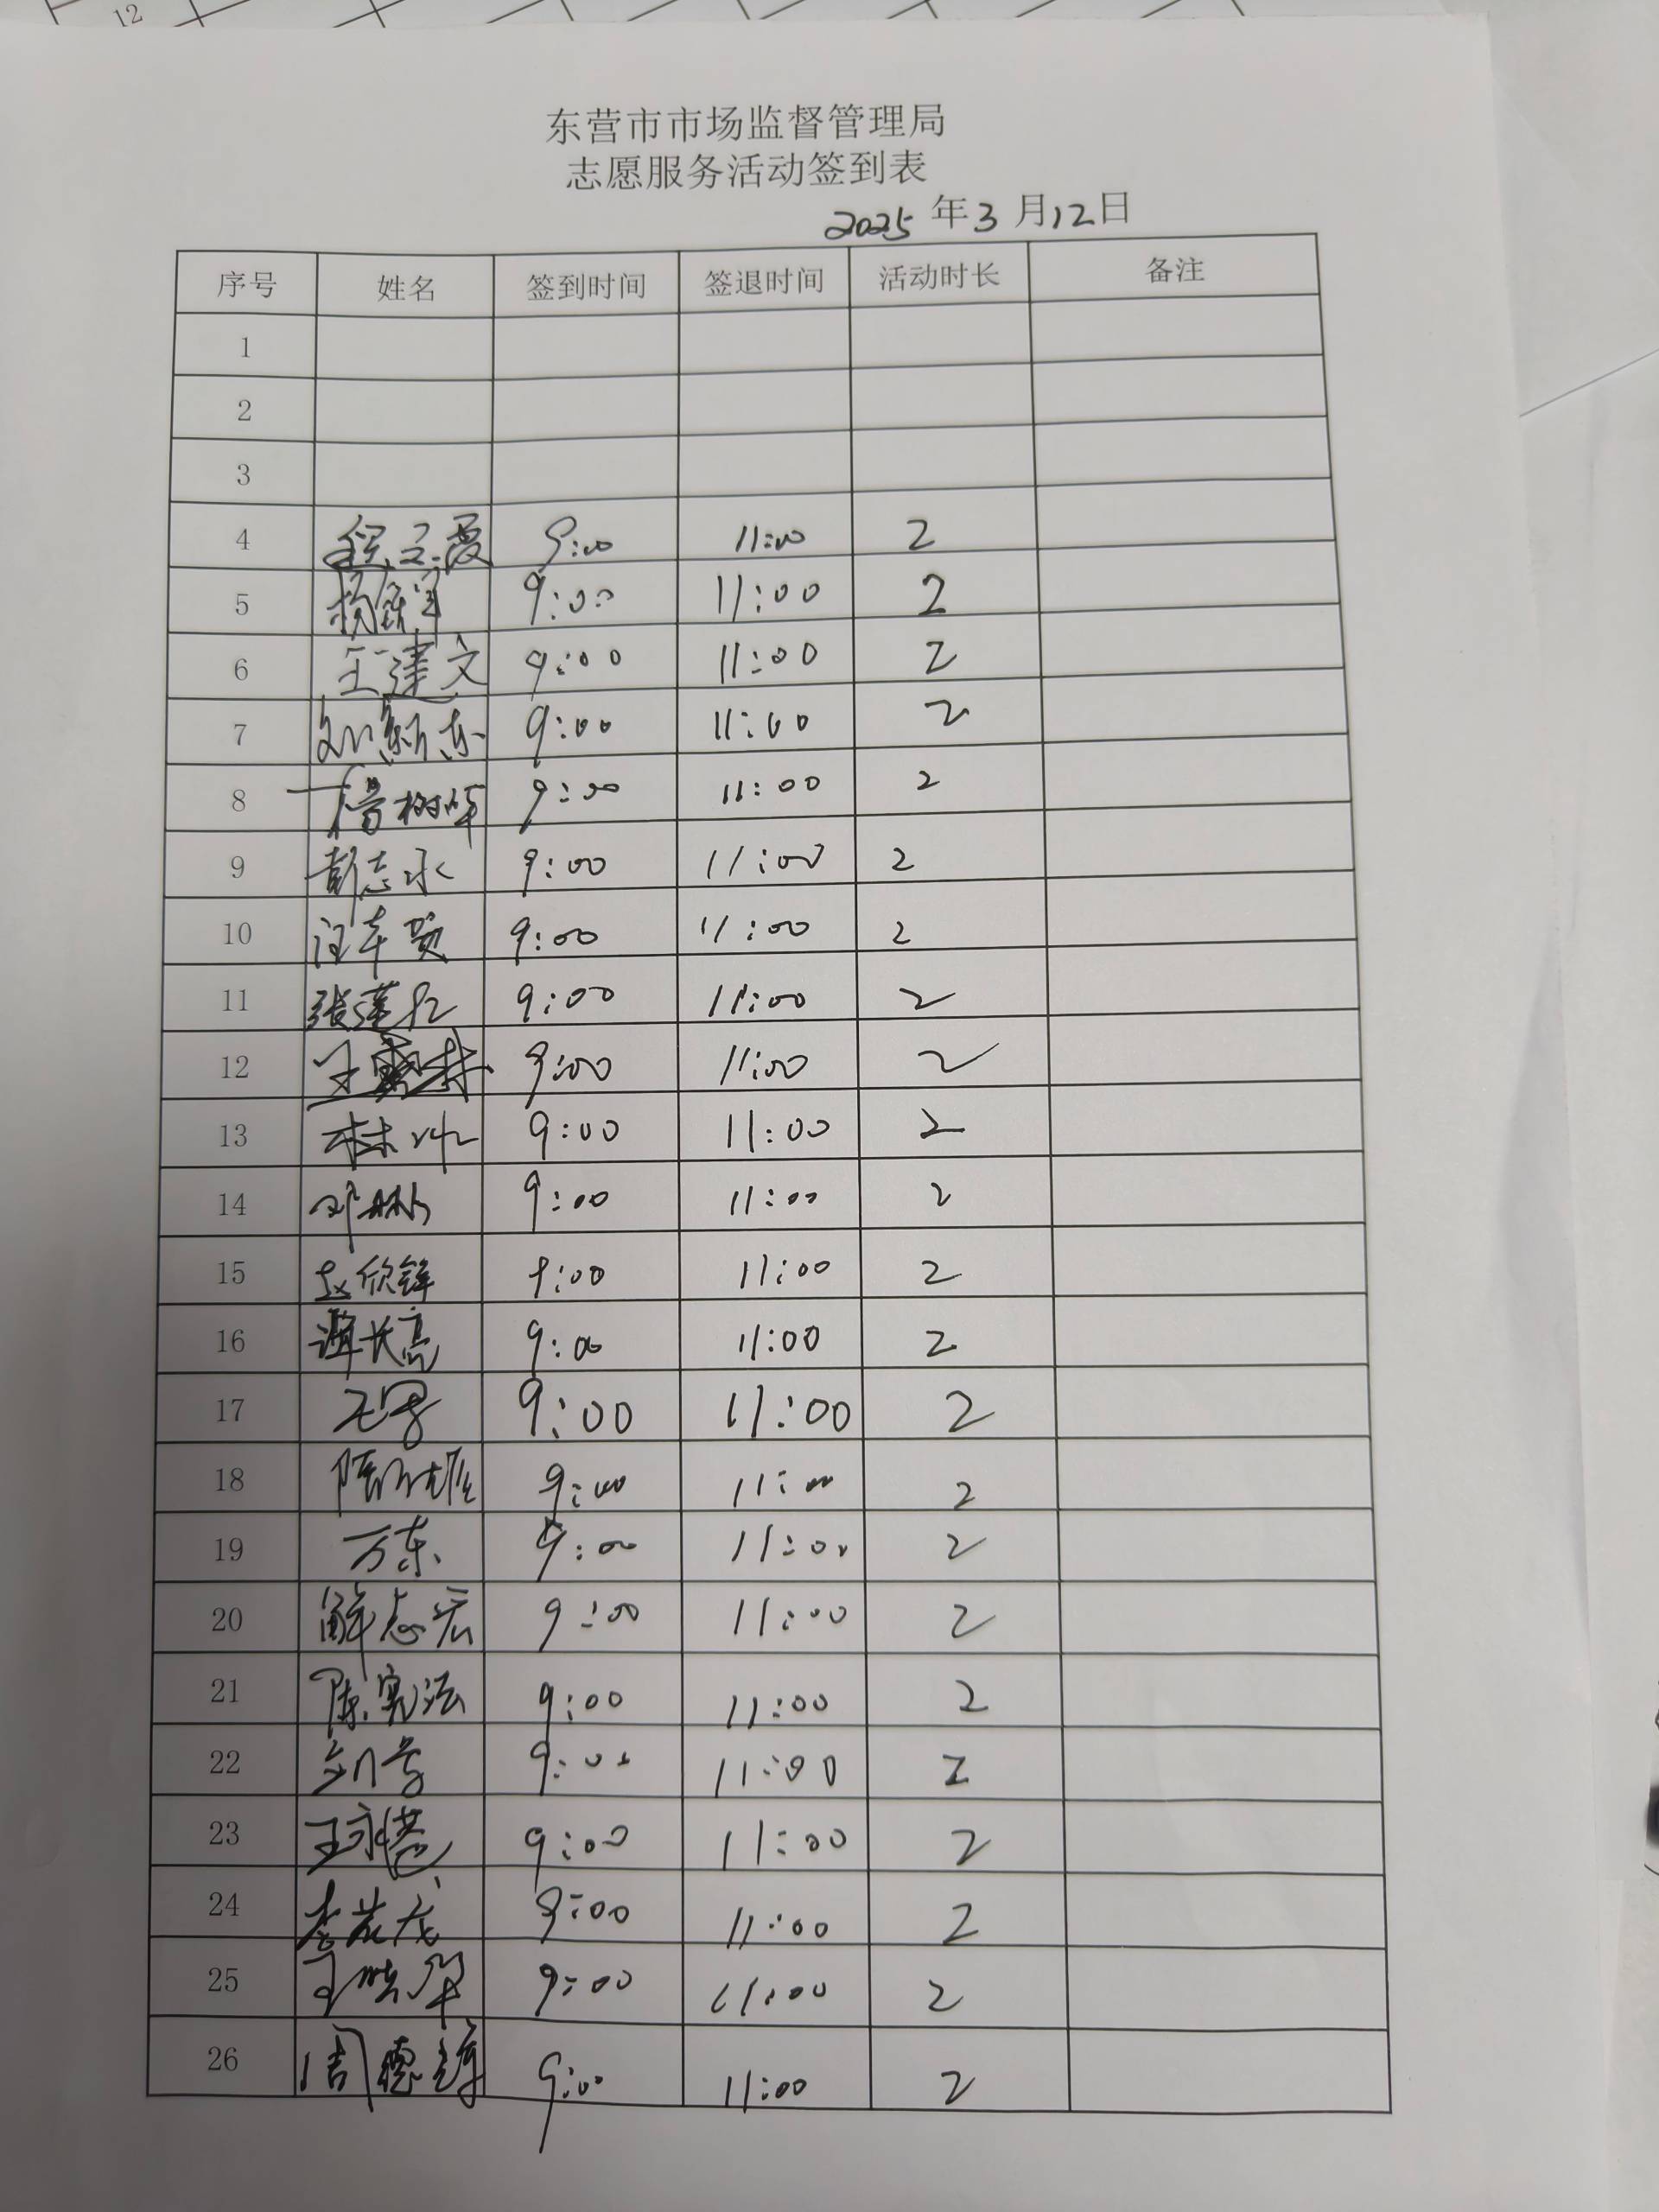 12
东营市市场监督管理局
志愿服务活动签到表
2025 年 3 月 12 日
序号 姓名 签到时间 签退时间 活动时长 备注
1
2
3
4 9:00 11:00 2
5 9:00 11:00 2
6 王建文 9:00 11:00 2
7 刘新东 9:00 11:00 2
8 9:00 11:00 2
9 彭志永 9:00 11:00 2
10 9:00 11:00 2
11 张莲红 9:00 11:00 2
12 9:00 11:00 2
13 林冲 9:00 11:00 2
14 邓彬 9:00 11:00 2
15 赵欣锋 9:00 11:00 2
16 谭长亮 9:00 11:00 2
17 9:00 11:00 2
18 9:00 11:00 2
19 万东 9:00 11:00 2
20 解志宏 9:00 11:00 2
21 陈宪法 9:00 11:00 2
22 9:00 11:00 2
23 9:00 11:00 2
24 9:00 11:00 2
25 9:00 11:00 2
26 9:00 11:00 2